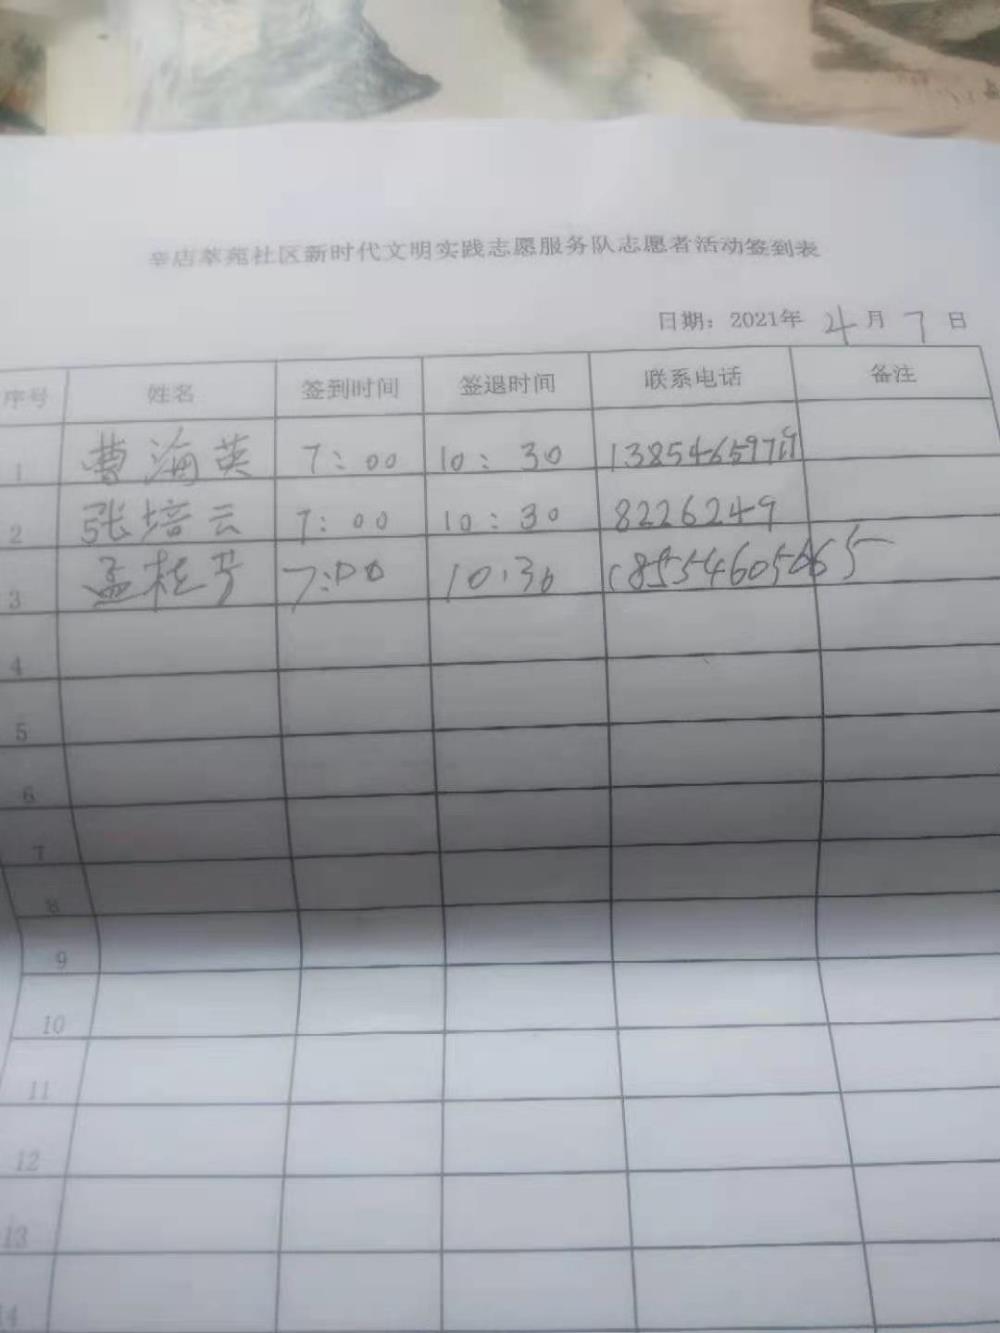 辛店萃苑社区新时代文明实践志愿服务队志愿者活动签到表
日期：2021年 4 月 7 日
序号 姓名 签到时间 签退时间 联系电话 备注
1 曹海英 7:00 10:30
2 张培云 7:00 10:30 8226249
3 孟桂芳 7:00 10:30 18554605665
4
5
6
7
8
9
10
11
12
13
14